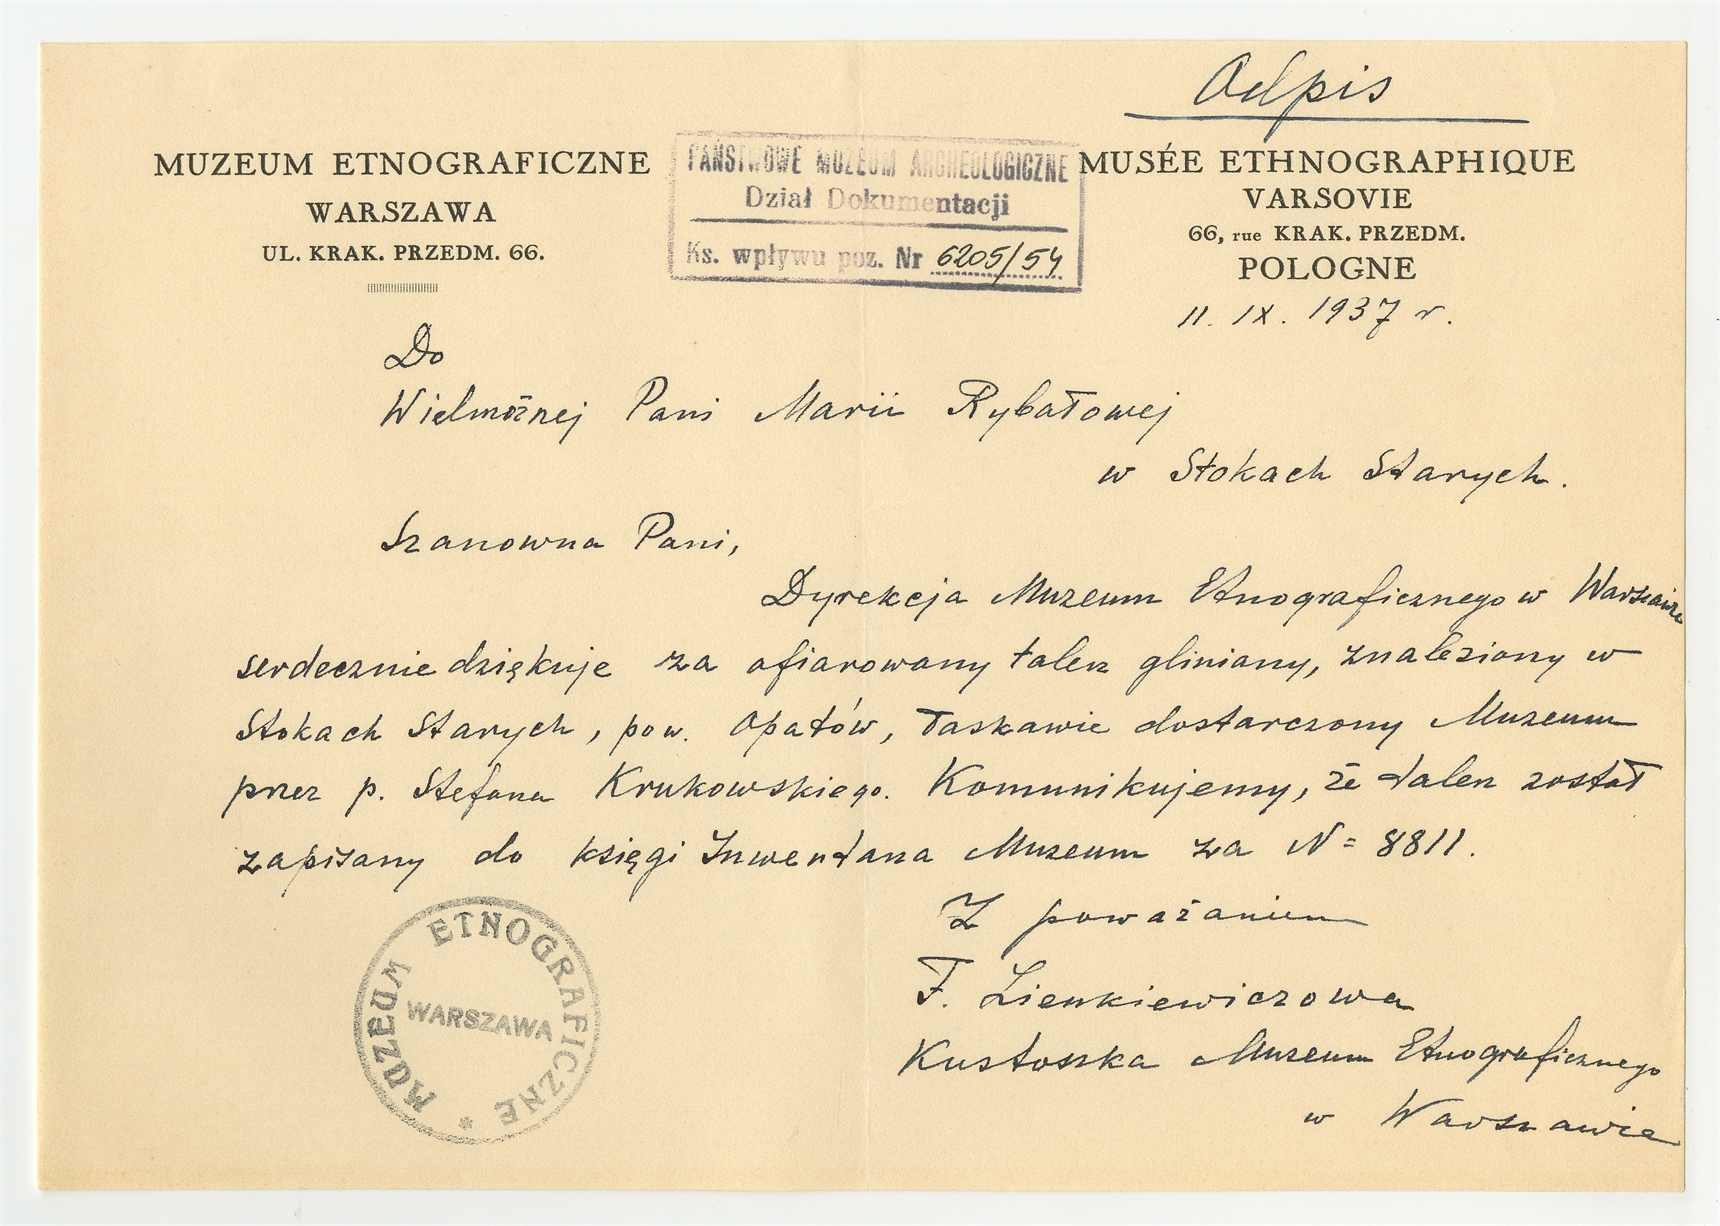 Odpis
MUZEUM ETNOGRAFICZNE
WARSZAWA
UL. KRAK. PRZEDM. 66.
PAŃSTWOWE MUZEUM ARCHEOLOGICZNE
Dział Dokumentacji
Ks. wpływu poz. Nr 6205/54
MUSÉE ETHNOGRAPHIQUE
VARSOVIE
66, rue KRAK. PRZEDM.
POLOGNE
11. IX. 1937 r.
Do
Wielmożnej Pani Marii Rybałowej
w Stokach Starych.
Szanowna Pani,
Dyrekcja Muzeum Etnograficznego w Warszawie
serdecznie dziękuje za ofiarowany talerz gliniany, znaleziony w
Stokach Starych, pow. Opatów, łaskawie dostarczony Muzeum
przez p. Stefana Krukowskiego. Komunikujemy, że talerz został
zapisany do księgi Inwentarza Muzeum za N= 8811.
Z poważaniem
F. Zienkiewiczowa
Kustoszka Muzeum Etnograficznego
w Warszawie
MUZEUM ETNOGRAFICZNE *
WARSZAWA